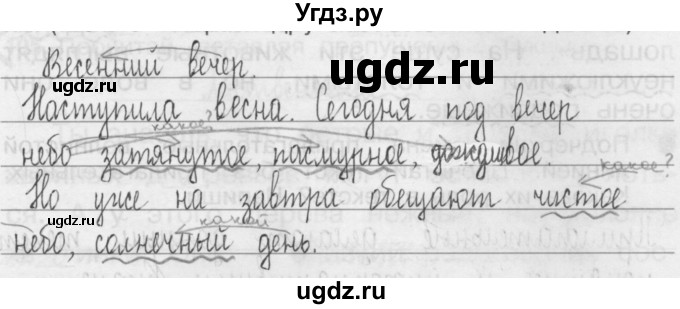 Угдз.ру
Весенний вечер.
ugdz.ru
Наступила весна. Сегодня под вечер
какое?
небо затянутое, пасмурное, дождливое.
какое?
Но уже на завтра обещают чистое
какой
небо, солнечный день.
ugdz.ru
ugdz.ru
ugdz.ru
ugdz.ru